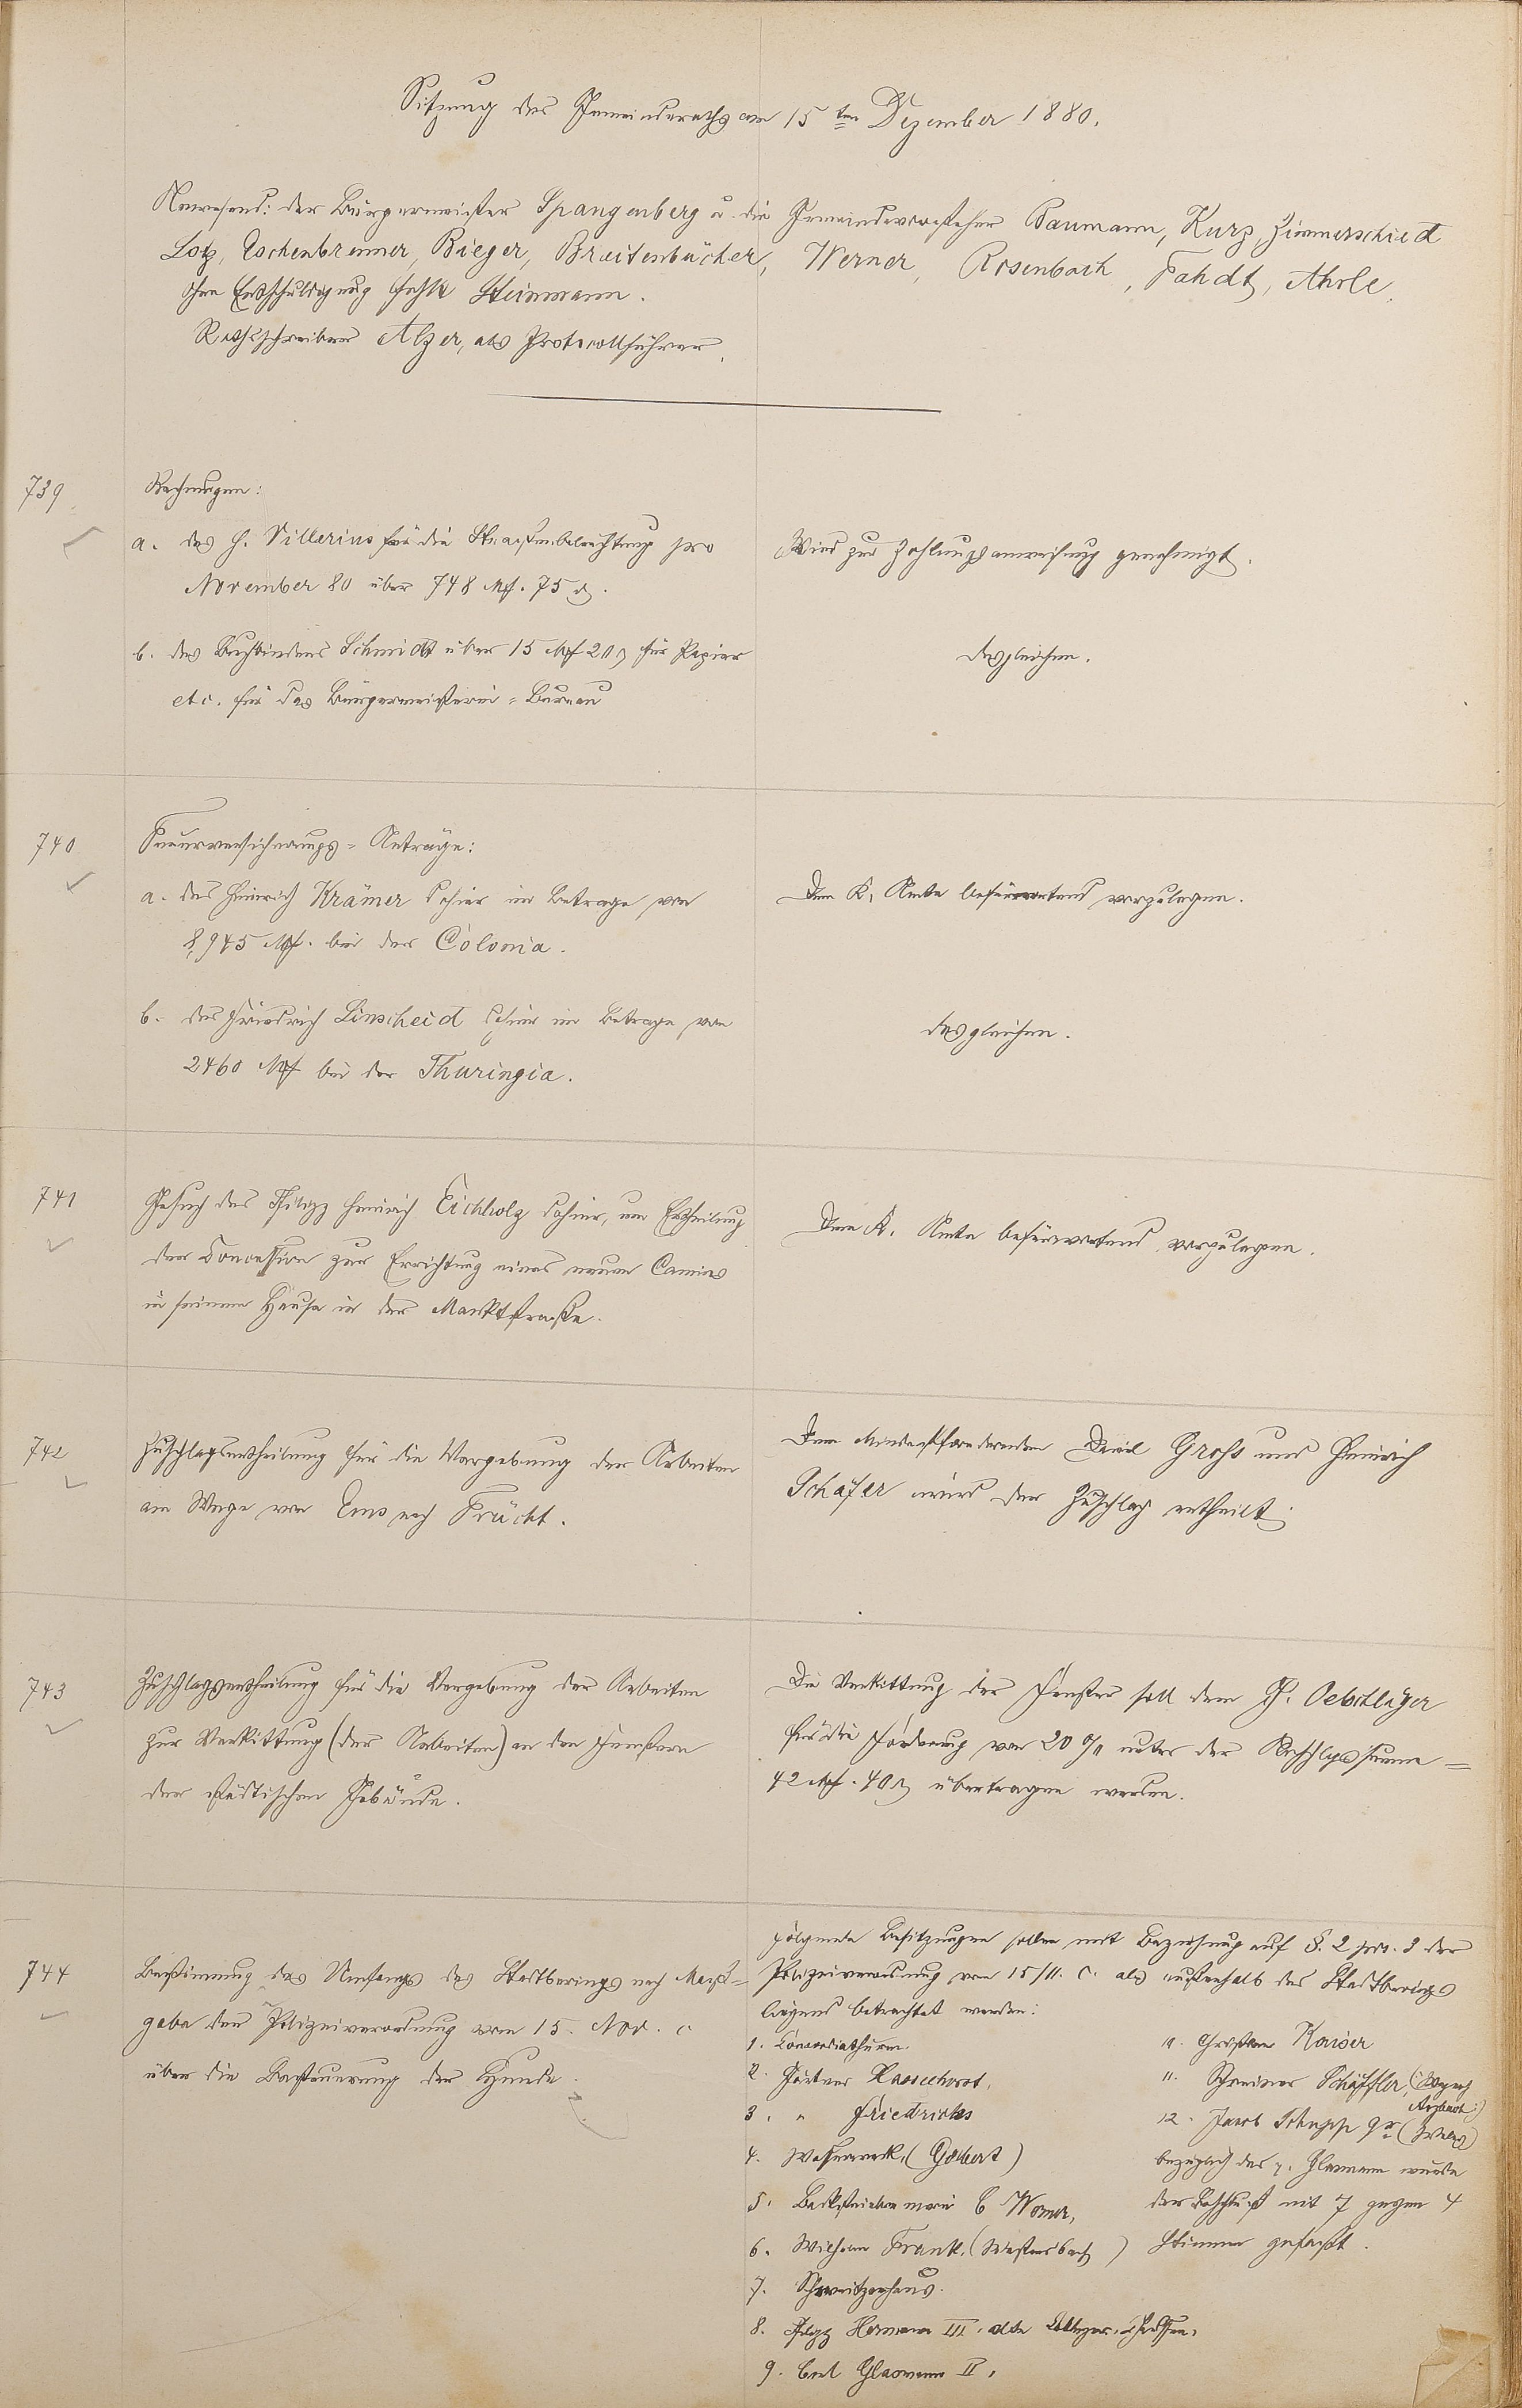 Sitzung des Gemeinderaths am 15ten Dezember 1880.
Anwesend: der Bürgermeister Spangenberg u. die Gemeindevorsteher Baumann, Kurz, Zimmerschied
Lotz, Eschenbrenner, Bieger, Breitenbücher, Werner, Rosenbach, Fahdt, Ahrle.
Ohne Entschuldigung fehlt Steinmann.
Rathsschreiber Alzer, als Protocollführer.
739
Rechnungen:
a. des H. Villerius für die Straßenbeleuchtung pro
November 80 über 748 Mk. 75 ₰.
Wird zur Zahlungsanweisung genehmigt.
b. des Buchbinders Schmidt über 15 Mk 20 ₰ für Papier
etc. für das Bürgermeisterei-Bureau
desgleichen.
740
Feuerversicherungs-Anträge:
a. des Heinrich Krämer dahier im Betrage von
8,945 Mk. bei der Colonia.
Dem K. Amte befürwortend vorzulegen.
b. des Friedrich Linscheid dahier im Betrage von
2460 Mk bei der Thuringia.
desgleichen.
741
Gesuch des Philipp Heinrich Eichholz dahier, um Ertheilung
der Concession zur Errichtung eines neuen Camins
in seinem Hause in der Marktstraße.
Dem K. Amte befürwortend vorzulegen.
742
Zuschlagsertheilung für die Vergebung der Arbeiten
am Wege von Ems nach Frücht.
Dem Mindestfordernden David Groß und Heinrich
Schäfer wird der Zuschlag ertheilt.
743
Zuschlagsertheilung für die Vergebung der Arbeiten
zur Verkittung (der Arbeiten) an den Fenstern
der städtischen Gebäude.
Die Verkittung der Fenster soll dem Oelschläger
für die Forderung von 20 % unter der Anschlagssumme =
42 Mk. 40 ₰ übertragen werden.
744
Bestimmung des Umfangs des Stadtberings nach Maß-
gabe der Polizeiverordnung vom 15. Nov. c
über die Besteuerung der Hunde.
Folgende Besitzungen sollen mit Beziehung auf §. 2 pos. 3 der
Polizeiverordnung vom 15/11. c. als außerhalb des Stadtberings
liegend betrachtet werden:
1. Concordiathurm
2. Gärtner
3. " Friedrichs
4. Wasenwerk, (Göbert)
5. Backsteinbrennerei C Werner,
6. Wilhelm Frank, (Wiesbach)
7. Schweitzerhaus.
8. Philipp Hermann III, alte Chaussee,
9. Carl Glasmann II,
10. Christian Kaiser
11. Schreiner Schäffler, (Weg nach
Arzbach)
12. Jacob Schupp 9r
bezüglich des p. Glasmann wurde
der Beschluß mit 7 gegen 4
Stimmen gefaßt.